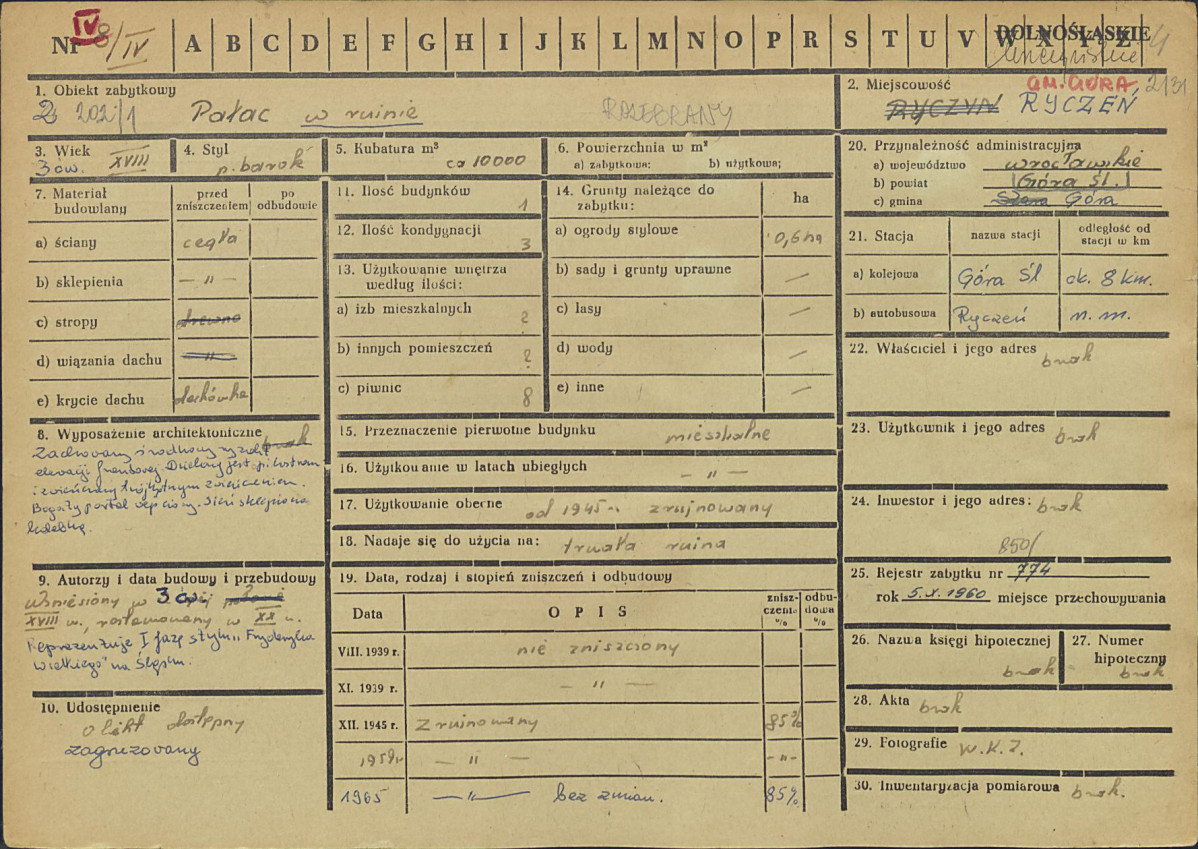 Nr IV 8/IV A B C D E F G H I J K L M N O P R S T U V W X Y Z DOLNOŚLĄSKIE 4
1. Obiekt zabytkowy
202/1 Pałac w ruinie ROZEBRANY
2. Miejscowość GM. GÓRA 2131
RYCZYN RYCZEŃ
3. Wiek XVIII
3 ćw.
4. Styl
p. barok
5. Kubatura m³
ca 10000
6. Powierzchnia w m²
a) zabytkowa: b) użytkowa;
7. Materiał budowlany
przed zniszczeniem
po odbudowie
a) ściany cegła
b) sklepienia — " —
c) stropy drewno
d) wiązania dachu — " —
e) krycie dachu dachówka
8. Wyposażenie architektoniczne brak
Zachowany środkowy ryzalit
elewacji frontowej. Dzielony jest pilastrami
i zwieńczony trójkątnym zwieńczeniem.
Bogaty portal wejściowy. Sień sklepiona
kolebką.
9. Autorzy i data budowy i przebudowy
Wzniesiony w 3 ćw.
XVIII w., restaurowany w XX w.
Reprezentuje I fazę stylu "Fryderyka
Wielkiego" na Śląsku.
10. Udostępnienie
obiekt dostępny
zagruzowany
11. Ilość budynków 1
12. Ilość kondygnacji 3
13. Użytkowanie wnętrza
według ilości:
a) izb mieszkalnych ?
b) innych pomieszczeń ?
c) piwnic 8
14. Grunty należące do
zabytku: ha
a) ogrody stylowe 0,6 ha
b) sady i grunty uprawne —
c) lasy —
d) wody —
e) inne —
15. Przeznaczenie pierwotne budynku mieszkalne
16. Użytkowanie w latach ubiegłych — " —
17. Użytkowanie obecne od 1945 r. zrujnowany
18. Nadaje się do użycia na: trwała ruina
19. Data, rodzaj i stopień zniszczeń i odbudowy
Data OPIS zniszczenia % odbudowa %
VIII. 1939 r. nie zniszczony
XI. 1939 r. — " —
XII. 1945 r. Zrujnowany 85%
1959 r — " — — " —
1965 — " — bez zmian. 85%
20. Przynależność administracyjna
a) województwo wrocławskie
b) powiat Góra Śl.
c) gmina Góra
21. Stacja nazwa stacji odległość od stacji w km
a) kolejowa Góra Śl ok. 8 km.
b) autobusowa Ryczeń n. m.
22. Właściciel i jego adres brak
23. Użytkownik i jego adres brak
24. Inwestor i jego adres: brak
850/
25. Rejestr zabytku nr 774
rok 5.X.1960 miejsce przechowywania
26. Nazwa księgi hipotecznej
brak
27. Numer
hipoteczny
brak
28. Akta brak
29. Fotografie W.K.Z.
30. Inwentaryzacja pomiarowa brak.